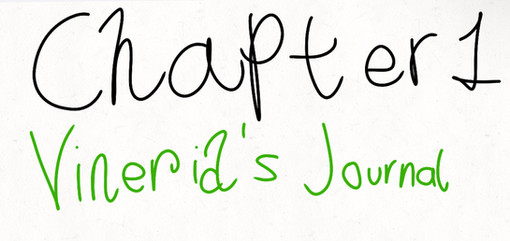 Chapter 1
Vinerid's Journal